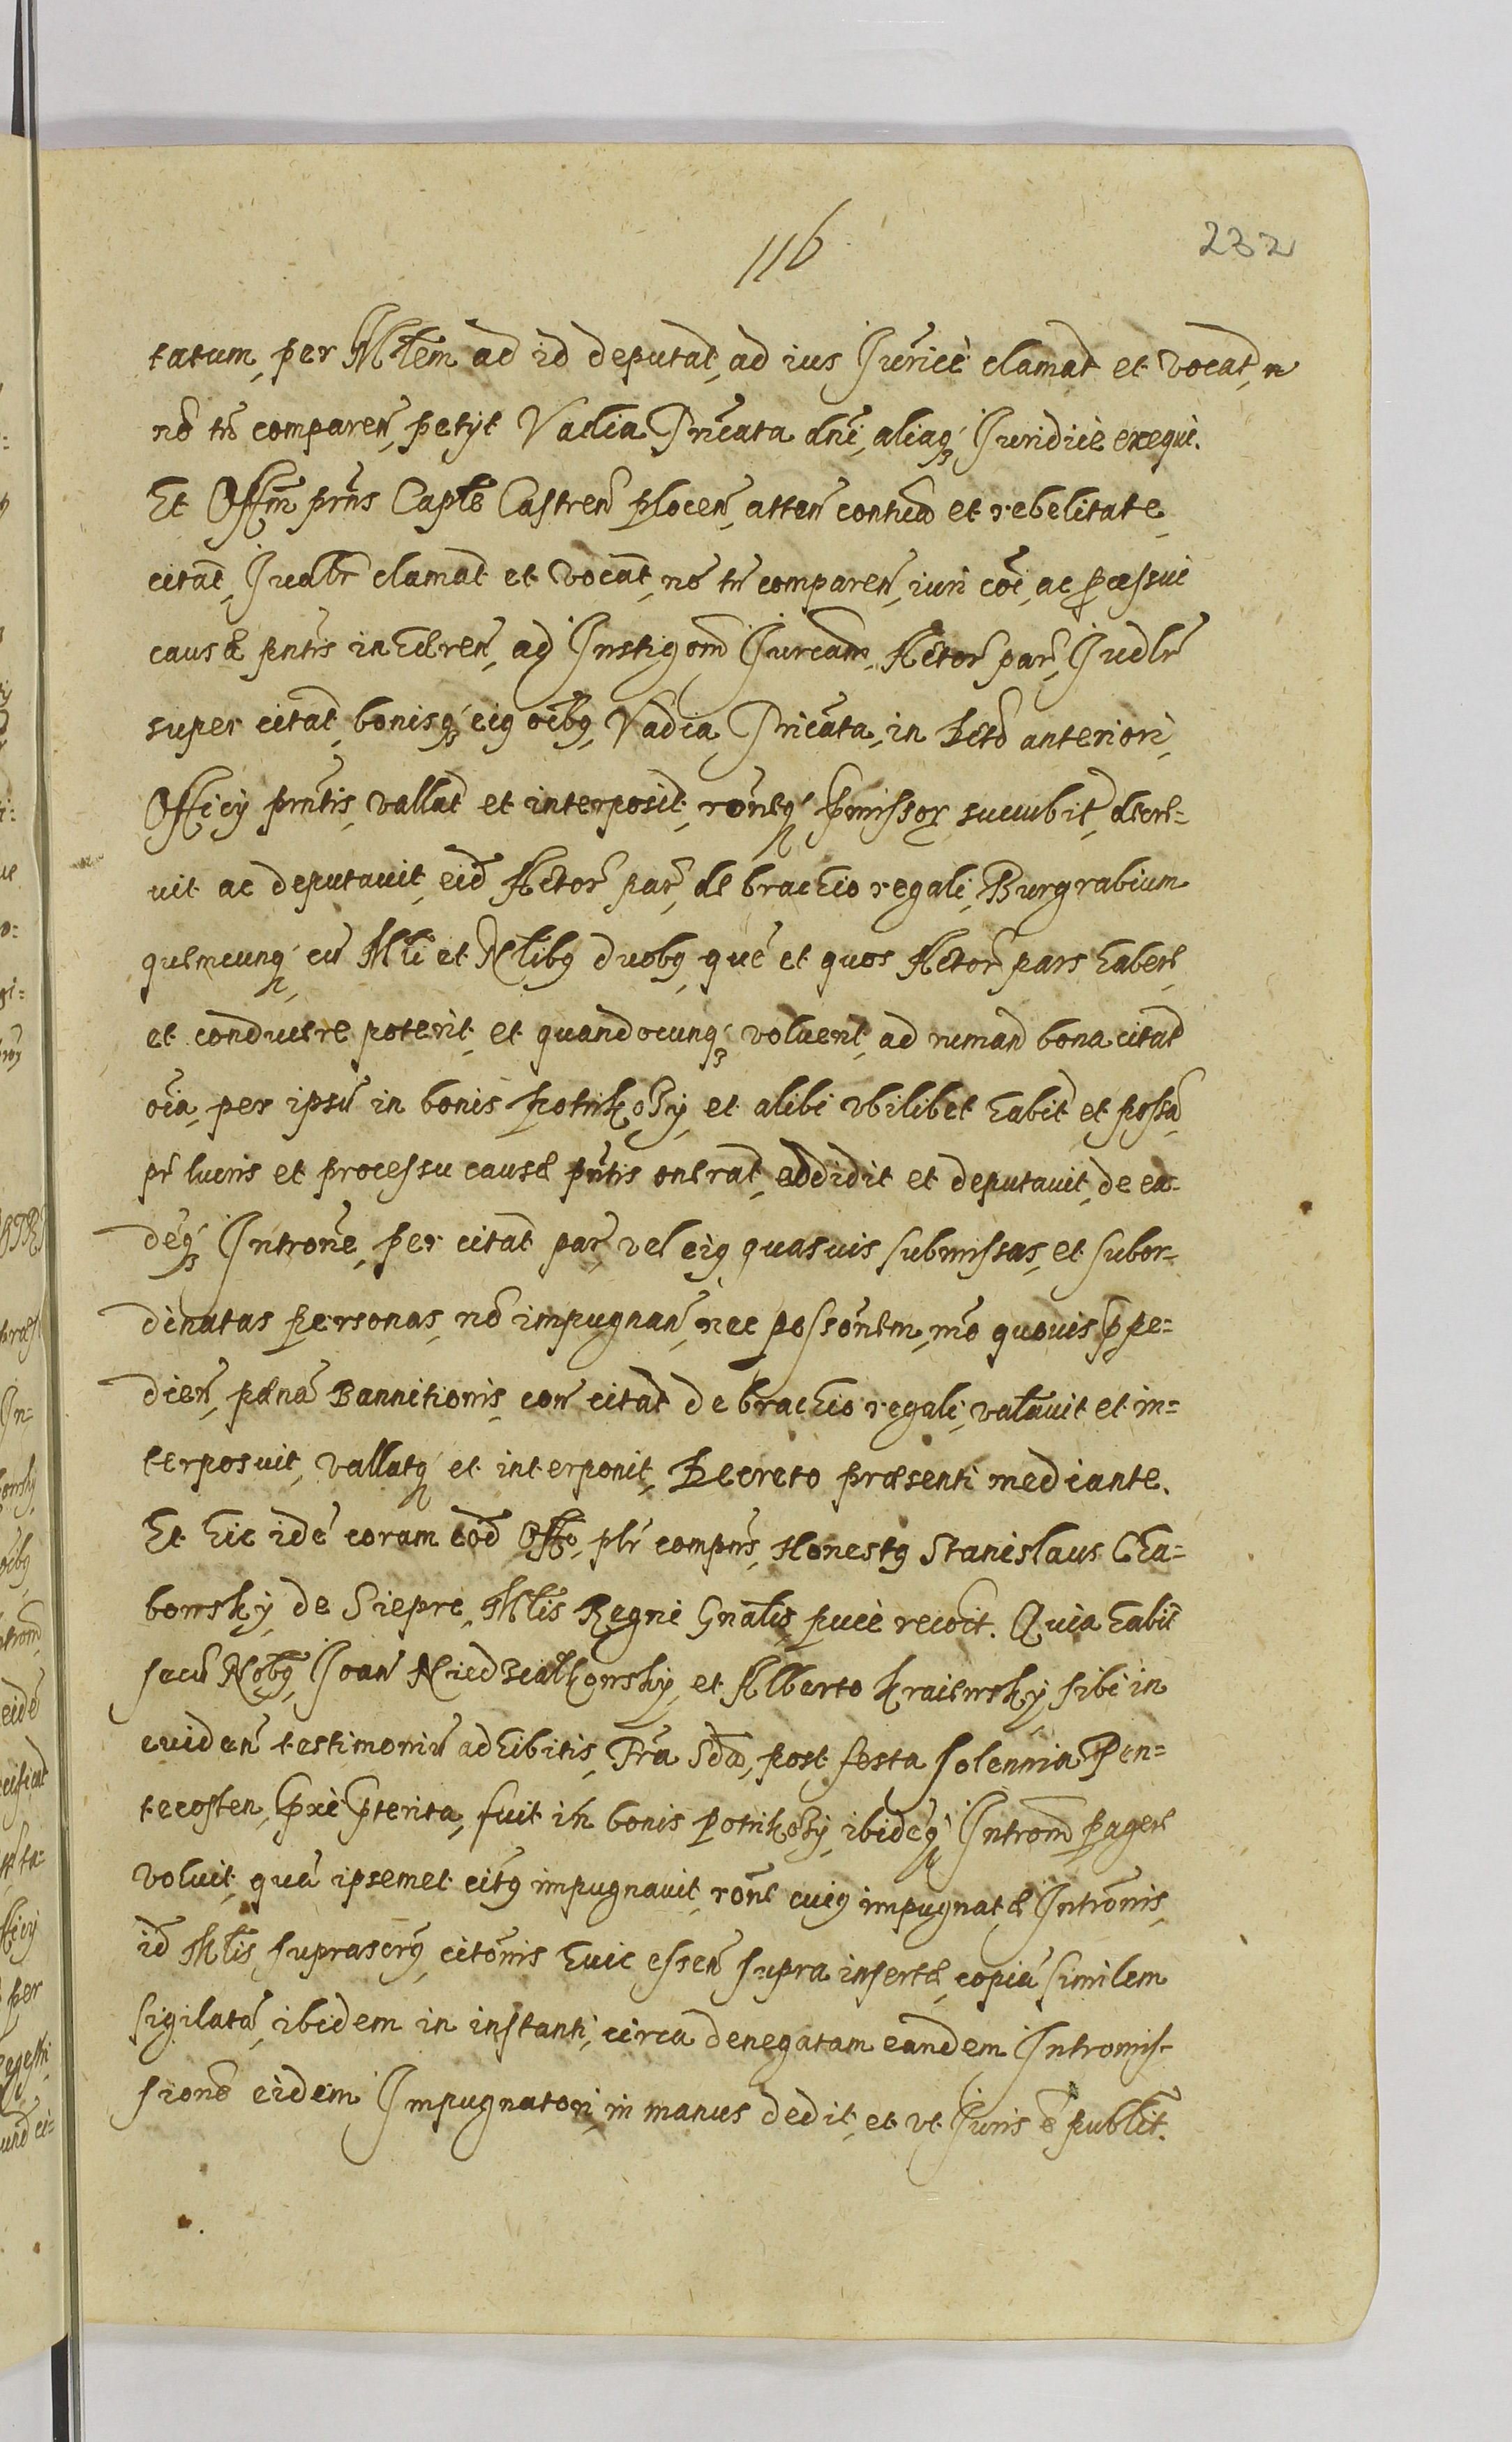 116
232
tatum, per Mlem ad id deputat, ad ius Jurice clamat et vocat, n
nō tn̄ comparen̄, petyt Vadia Pricata dn̄i, aliaq́ʒ Juridice exequi.
Et Offm̄ prn̄s Caple Castren̄ plocen̄, atten̄ contum̄ et rebelitate
citat, Judlr̄ clamat et vocat, nō tn̄ comparen̄, iuri cōi, ac pcessui
causæ pntis inhæren̄, ad Instigom̄ Juream̄, Actor̄ par̄, Judlr̄
super citat, bonisq́ʒ eiq oibq, Vadia Pricata, in Dcto anteriori,
Officij prn̄tis, vallat et interposit, rōneq́ʒ pmissor̄ succubit, decre-
vit ac deputauit, eid Actor̄ par̄, de brachio regali, Burgrabium
quemcunq́ʒ cū Mli et Nlibq duobq, quē et quos Actor̄ pars habere,
et conducere poterit, et quandocunq́ʒ voluerit, ad ruman̄ bona citat
oīa, per ipsū in bonis Potrikozy, et alibi vbilibet habit et possa,
pr̄ lucris et processu causæ pn̄tis onerat, addidit et deputauit, de ea-
dēq́ʒ Intron̄e, per citat par̄, vel eiq quasuis submissas, et subor-
dinatas personas, nō impugnan̄, nec possōnem, mō quouis ppe-
dien̄, pænā Bannitionis, con̄ citat de brachio regali, valauit et in-
terposuit, vallatq́ʒ et interponit, Decreto præsenti mediante.
Et hic idē coram eod Offo, plr̄ compn̄s, Honestq Stanislaus Cha-
bowsky de Siepre, Mlis Regni Gnalis, puce recoit. Quia habit
secū Nobq, Joan̄ Niedzialkowsky, et Alberto Kraiewsky, sibi in
euiden̄ testimoniū adhibitis, Fr̄a Sda, post festa solennia Pen-
tecosten, pxe pterita, fuit in bonis Potrikozy, ibidēq́ʒ Introm̄ pagere
voluit, quā ipsemet citq impugnauit, rōne cuiq impugnatæ Intrōnis,
id Mlis, suprascrq, citōnis huic essen̄ supra insertæ, copiā similem
sigilatā, ibidem in instanti, circa denegatam eandem Intromis-
sionē eidem Impugnatori, in manus dedit, et vt Juris ē publit.